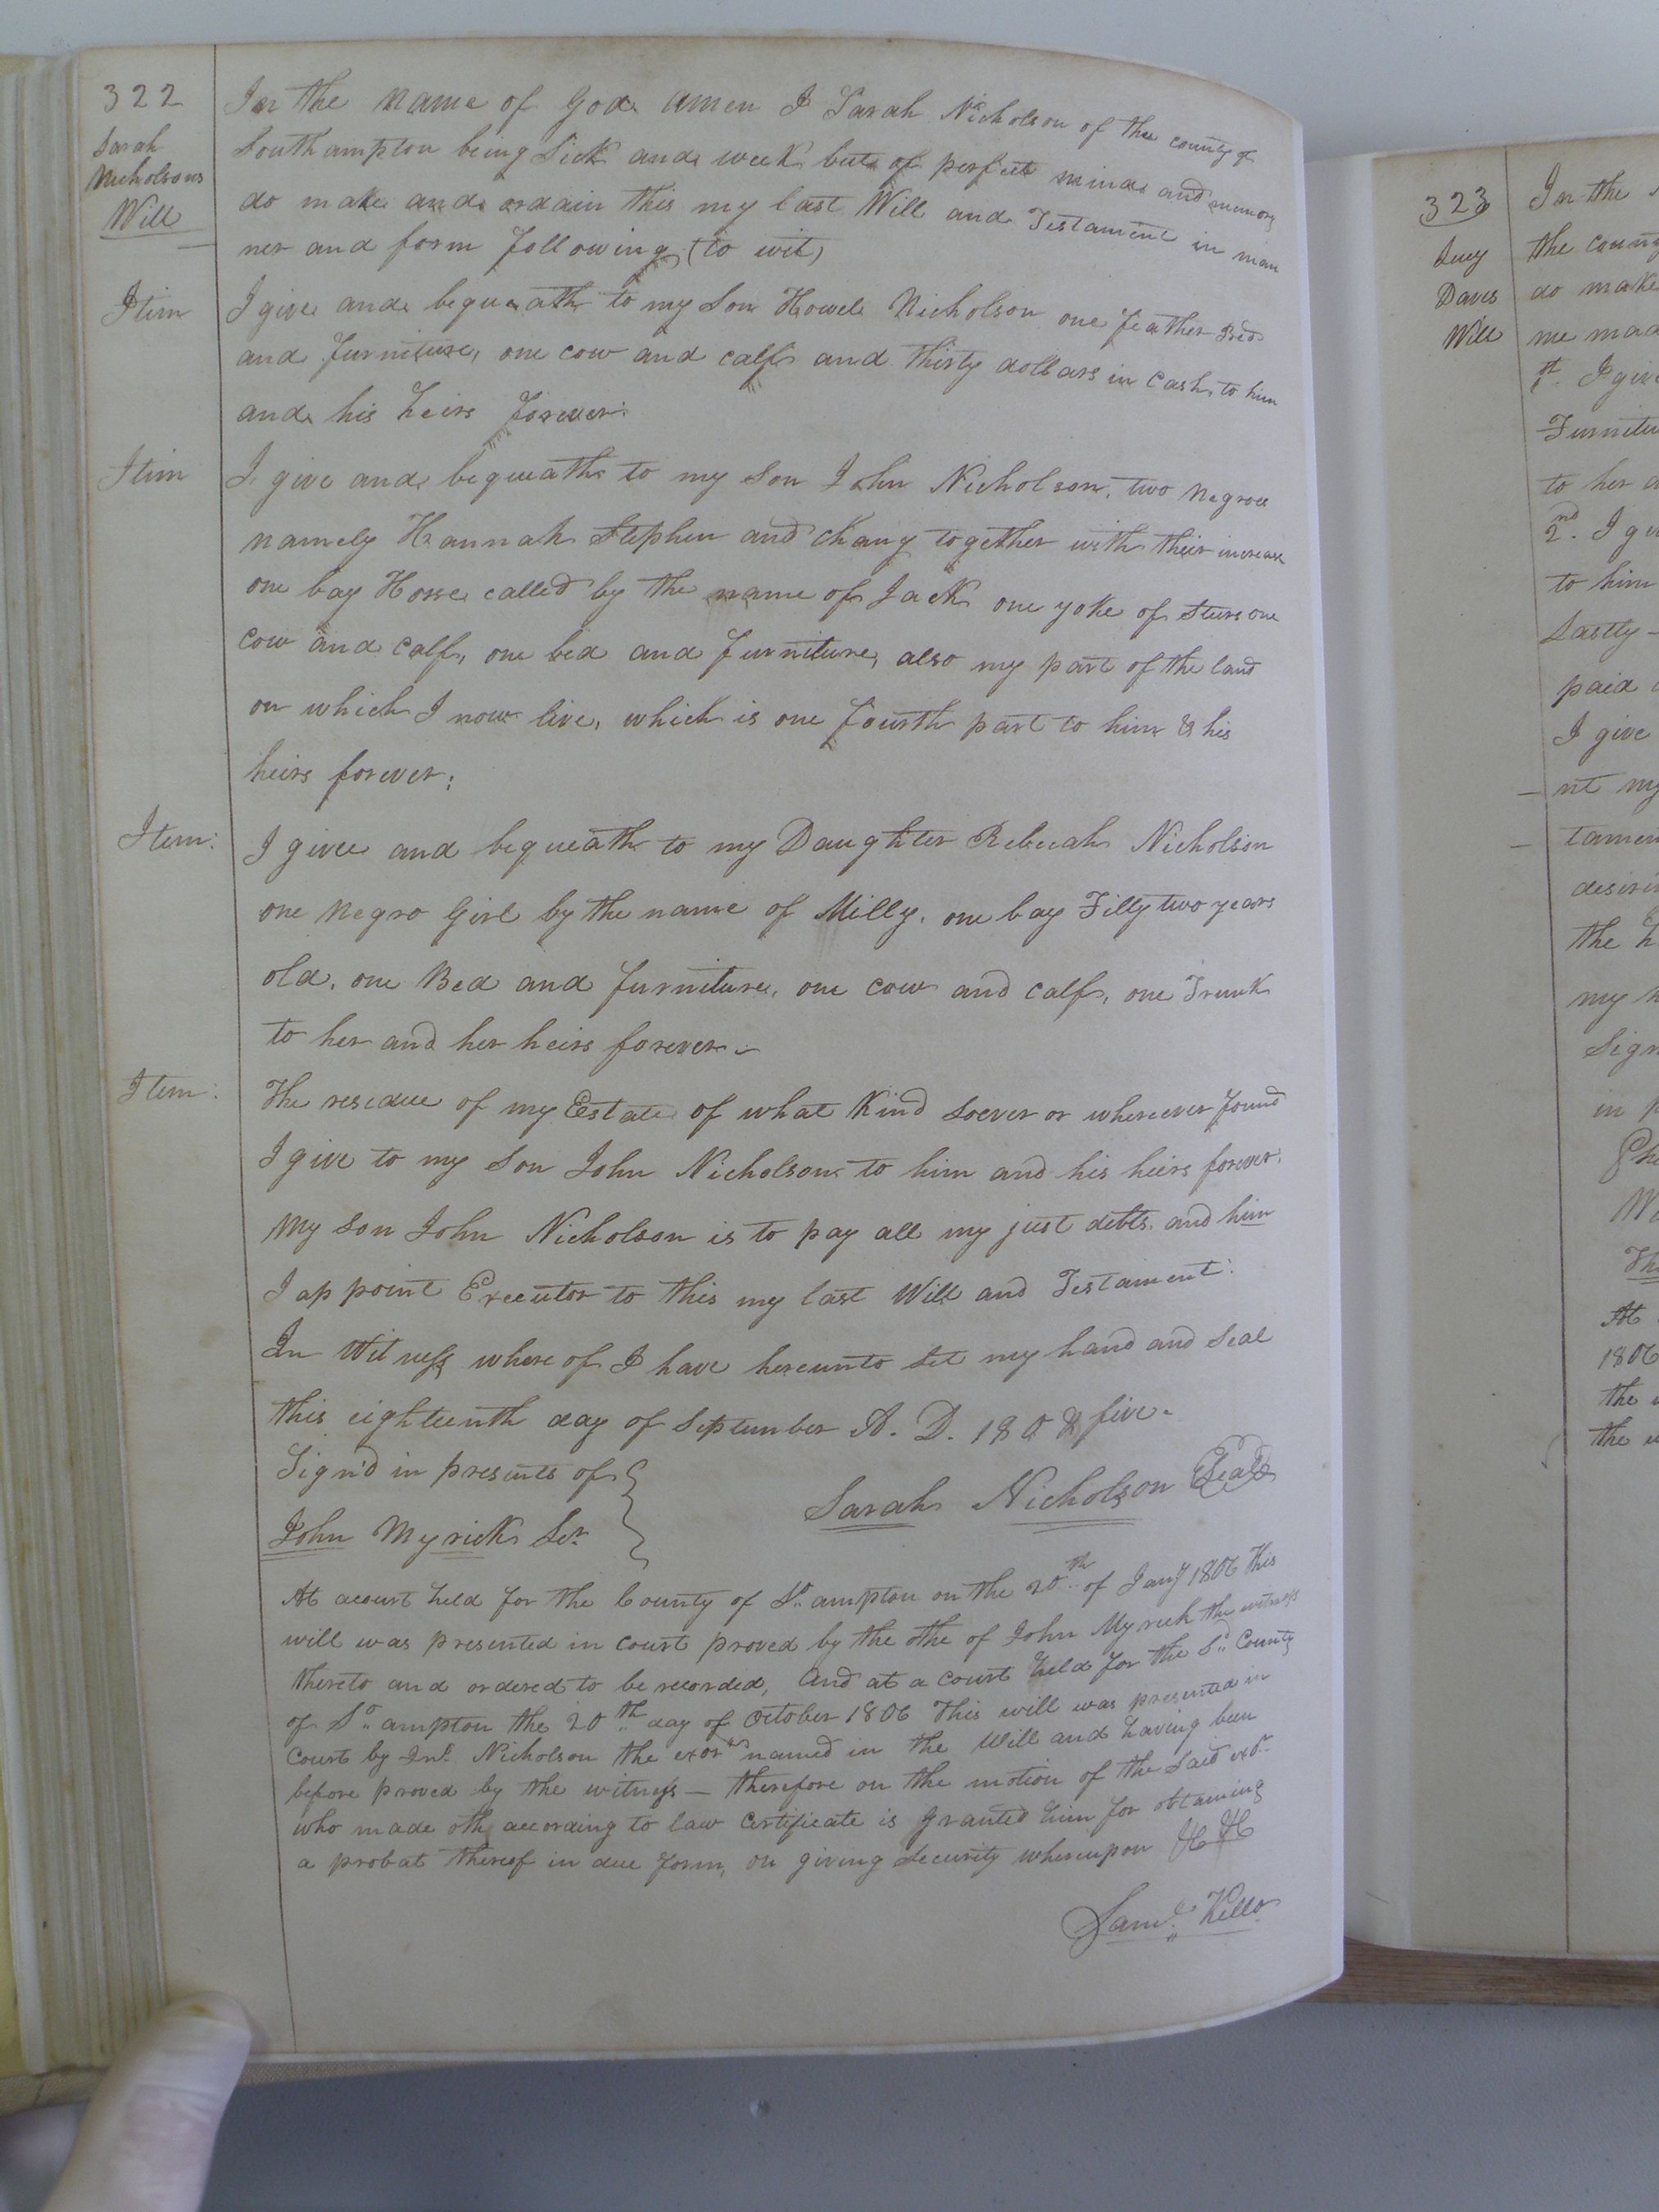 322
Sarah
Nicholsons
Will
In the name of God amen I Sarah Nicholson of the county of
Southampton being Sick and week but of perfect mind and memory
do make and ordain this my last Will and Testament in man
ner and form following (to wit)
Itim
I give and bequeath to my Son Howel Nicholson one feather Bed
and furniture, one cow and calf and thirty dollars in Cash, to him
and his heirs forever:
Itim
I give and bequeath to my Son John Nicholson, two negroes
namely Hannah Stephen and Chany together with their increase
one bay Horse called by the name of Jack one yoke of Steers one
Cow and Calf, one bed and furniture, also my part of the land
on which I now live, which is one fourth part to him & his
heirs forever;
Item:
I give and bequeath to my Daughter Rebecah Nicholson
one negro Girl by the name of Milly, one bay Filly two years
old, one Bed and furniture, one cow and calf, one Trunk
to her and her heirs forever.
Item:
The residue of my Estate of what Kind soever or wherever found
I give to my Son John Nicholson to him and his heirs forever.
My son John Nicholson is to pay all my just debts. and him
I appoint Executor to this my last Will and Testament:
In Witness where of I have hereunto Set my hand and Seal
this eighteenth day of September A. D. 180 & five.
Sign'd in presents of
Sarah Nicholson Seal
John Myrick Sr.
At acourt held for the County of So. ampton on the 20th of Jany 1806 This
will was presented in court proved by the othe of John Myrick the witness
thereto and ordered to be recorded, And at a court held for the Sd. County
of So. ampton the 20th day of October 1806 This will was presented in
Court by Jno. Nicholson the exor named in the Will and having been
before proved by the witness — therefore on the motion of the Said exr.
who made oth according to law Certificate is Granted him for obtaining
a probat thereof in due form, on giving Security whereupon
Saml. Kello
323
Lucy
Daves
Will
In the
the coun
do make
me mad
1st. I give
Furnitu
to her
2nd. I gi
to him
Lastly —
paid
I give
nt my
tamen
desiri
the h
my
Sign
in p
At
1806
the
the